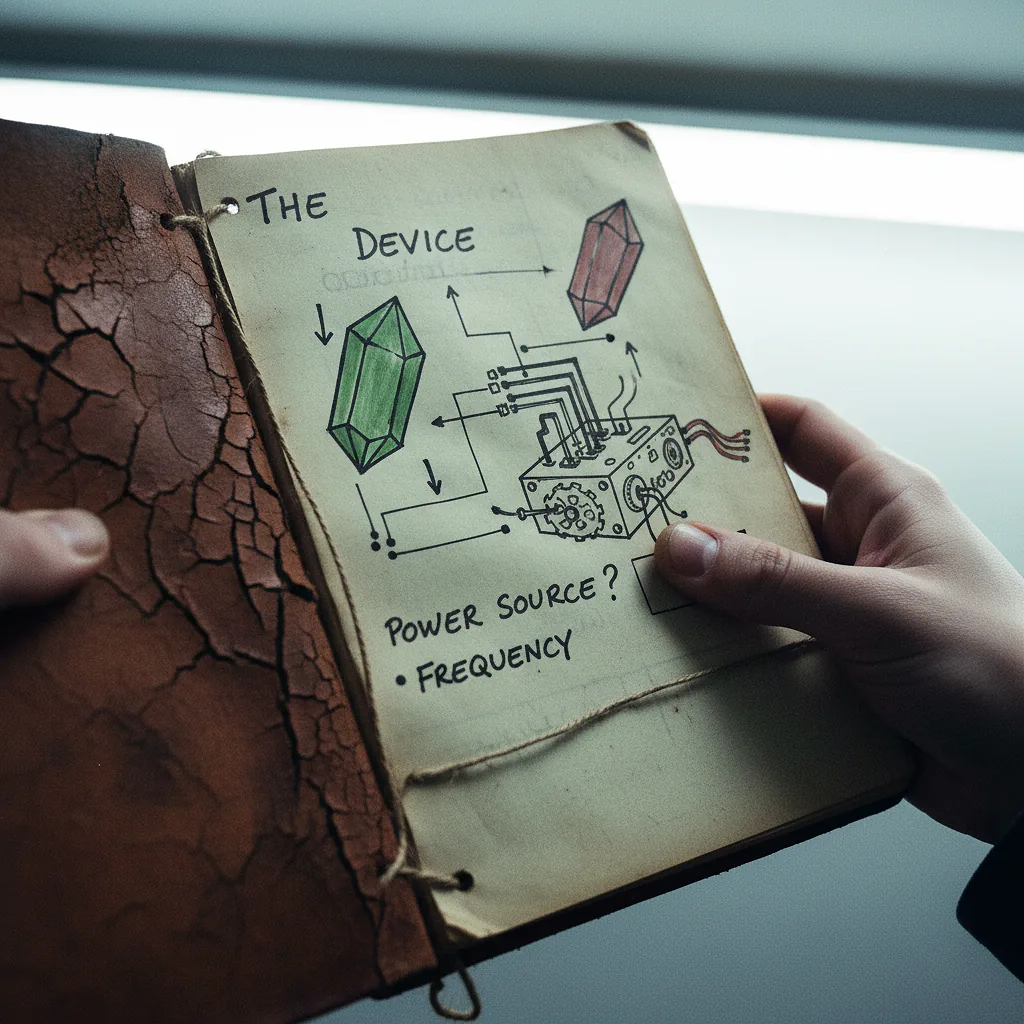 THE
DEVICE
POWER SOURCE?
• FREQUENCY